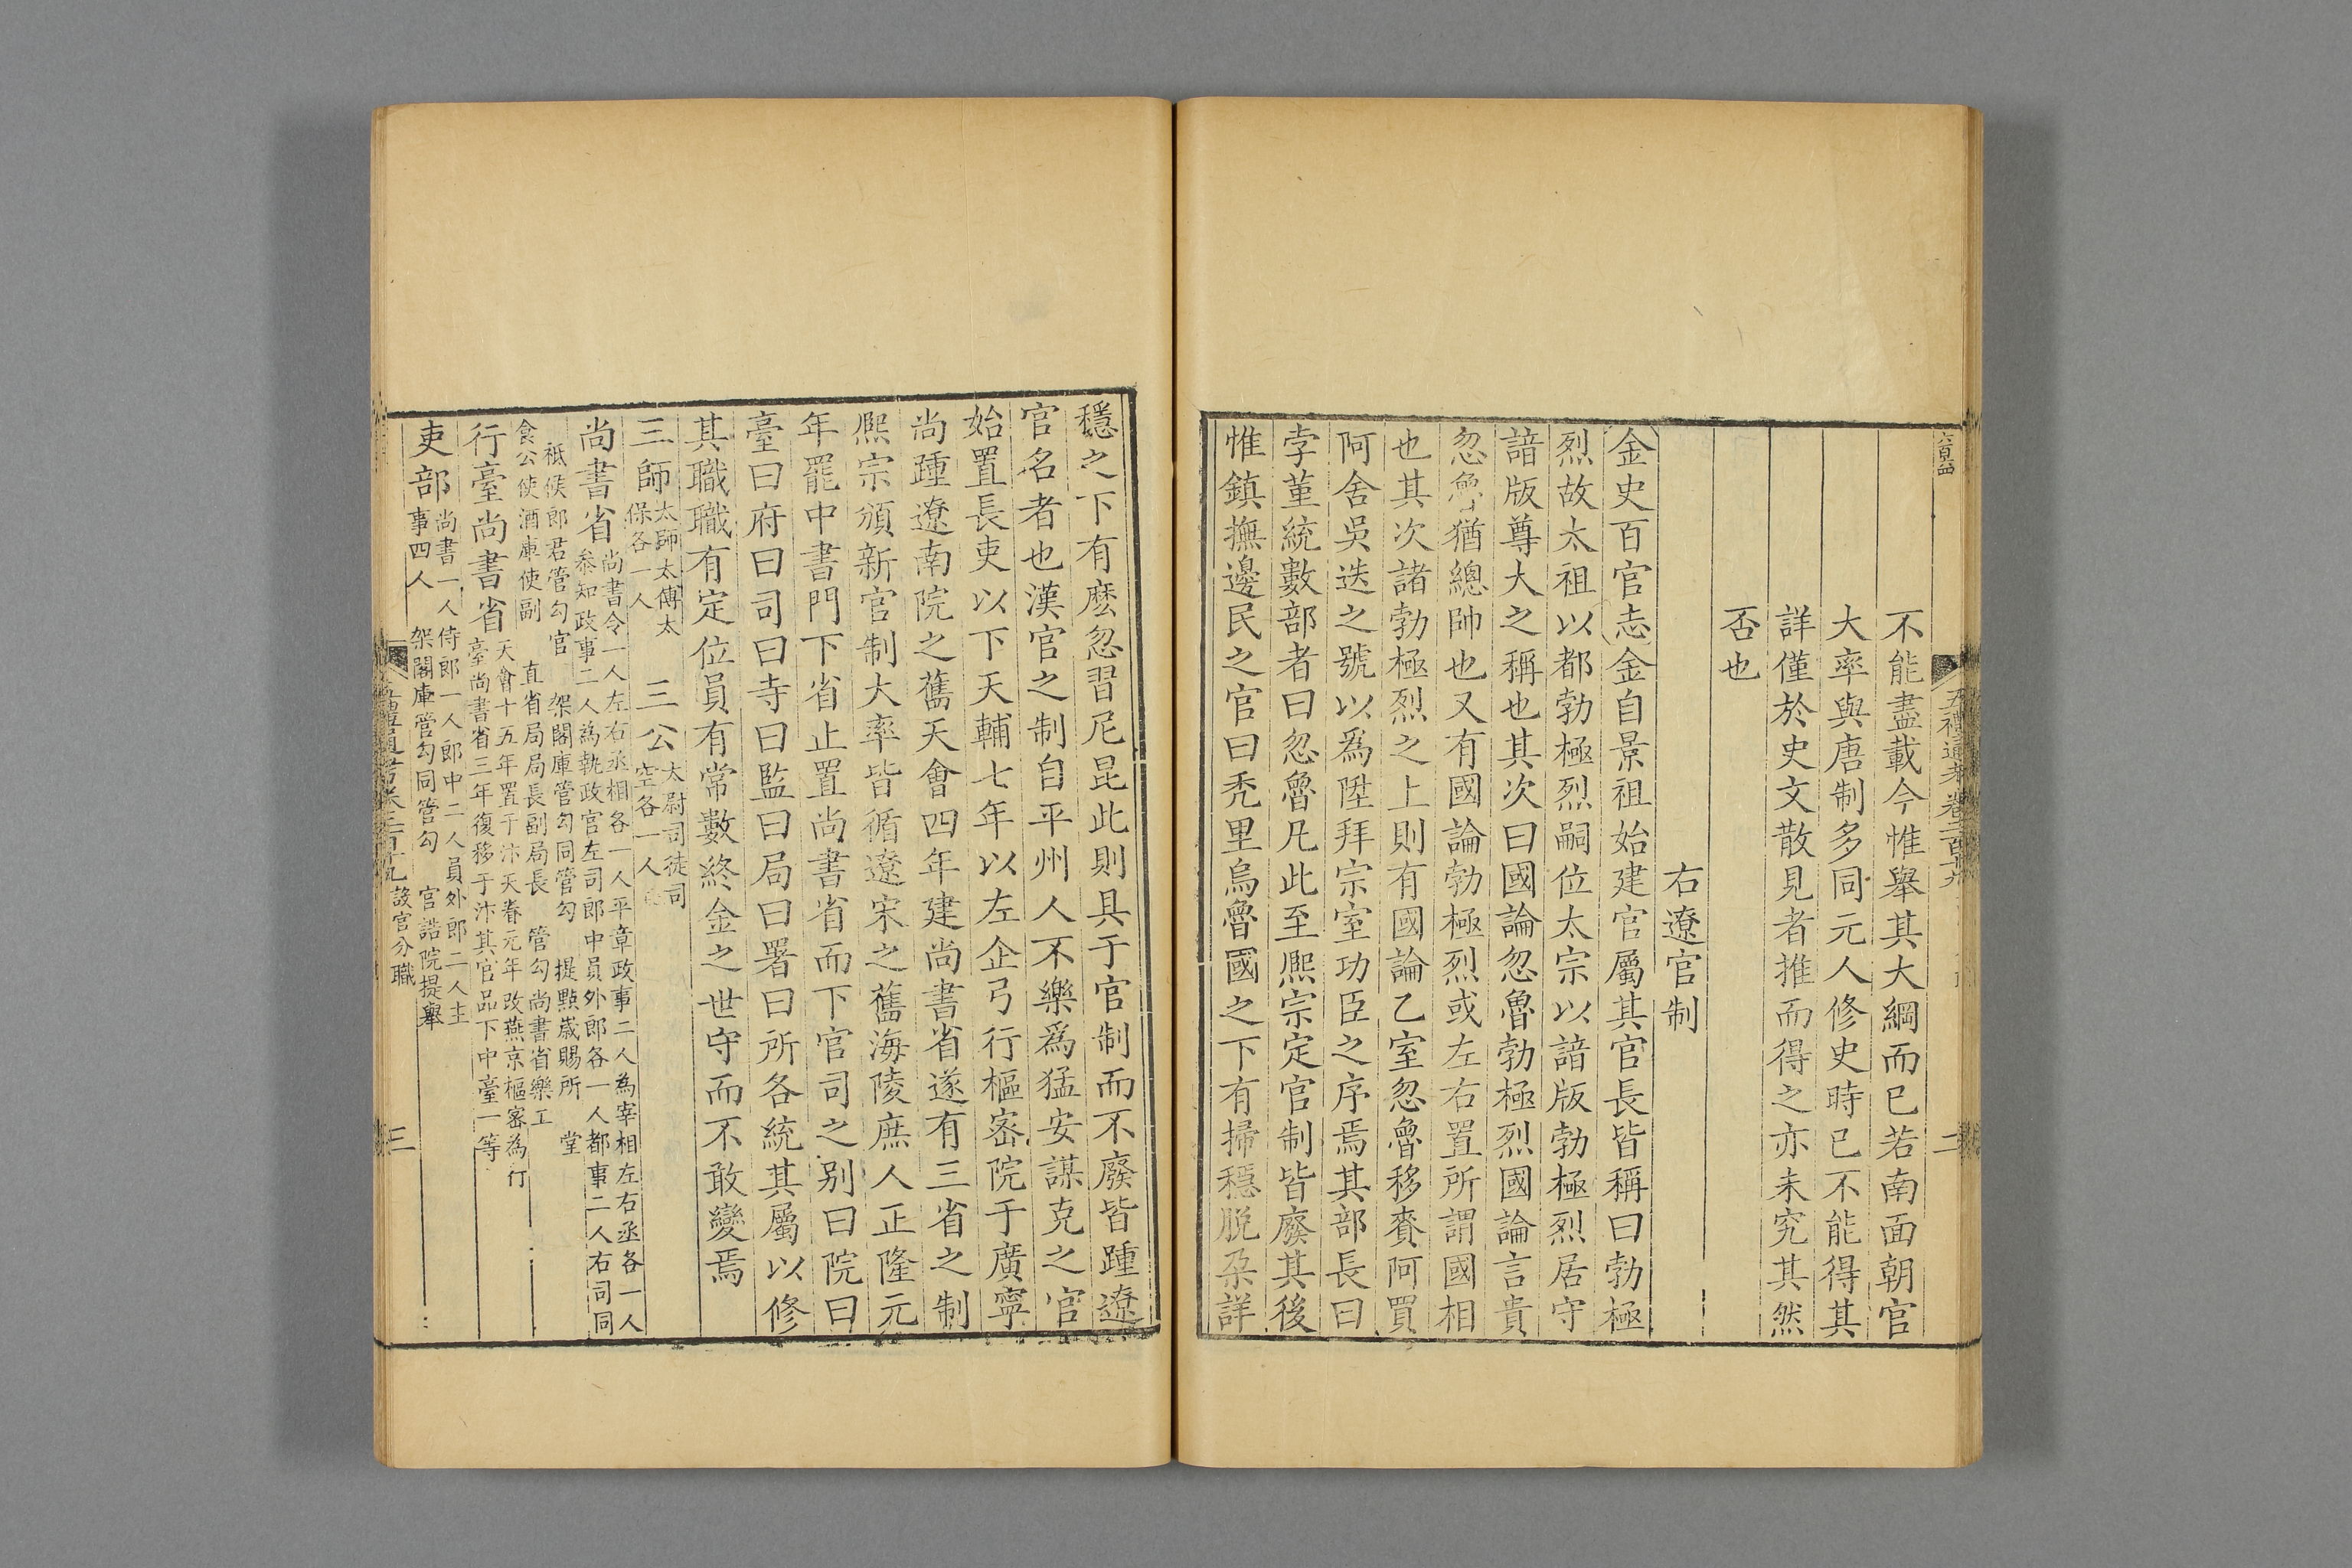 五禮通考卷二百十九
二
不能盡載今惟舉其大綱而已若南面朝官
大率與唐制多同元人修史時已不能得其
詳僅於史文散見者推而得之亦未究其然
否也
右遼官制
金史百官志金自景祖始建官屬其官長皆稱曰勃極
烈故太祖以都勃極烈嗣位太宗以諳版勃極烈居守
諳版尊大之稱也其次曰國論忽魯勃極烈國論言貴
忽魯猶總帥也又有國論勃極烈或左右置所謂國相
也其次諸勃極烈之上則有國論乙室忽魯移賚阿買
阿舍吳迭之號以爲陞拜宗室功臣之序焉其部長曰
孛菫統數部者曰忽魯凡此至熙宗定官制皆廢其後
惟鎮撫邊民之官曰禿里烏魯國之下有掃穩脫朶詳
穩之下有麽忽習尼昆此則具于官制而不廢皆踵遼
官名者也漢官之制自平州人不樂爲猛安謀克之官
始置長吏以下天輔七年以左企弓行樞密院于廣寧
尚踵遼南院之舊天會四年建尚書省遂有三省之制
熙宗頒新官制大率皆循遼宋之舊海陵庶人正隆元
年罷中書門下省止置尚書省而下官司之别曰院曰
臺曰府曰司曰寺曰監曰局曰署曰所各統其屬以修
其職職有定位員有常數終金之世守而不敢變焉
三師 太師太傅太
保各一人
三公 太尉司徒司
空各一人
尚書省 尚書令一人左右丞相各一人平章政事二人為宰相左右丞各一人
參知政事二人為執政官左司郎中員外郎各一人都事二人右司同
祗候郎君管勾官 架閣庫管勾同管勾 提點歲賜所 堂
食公使酒庫使副 直省局局長副局長 管勾尚書省樂工
行臺尚書省 天會十五年置于汴天眷元年改燕京樞密為行
臺尚書省三年復移于汴其官品下中臺一等
吏部 尚書一人侍郎一人郎中二人員外郎二人主
事四人 架閣庫管勾同管勾 官誥院提舉
五禮通考卷二百十九 設官分職
三